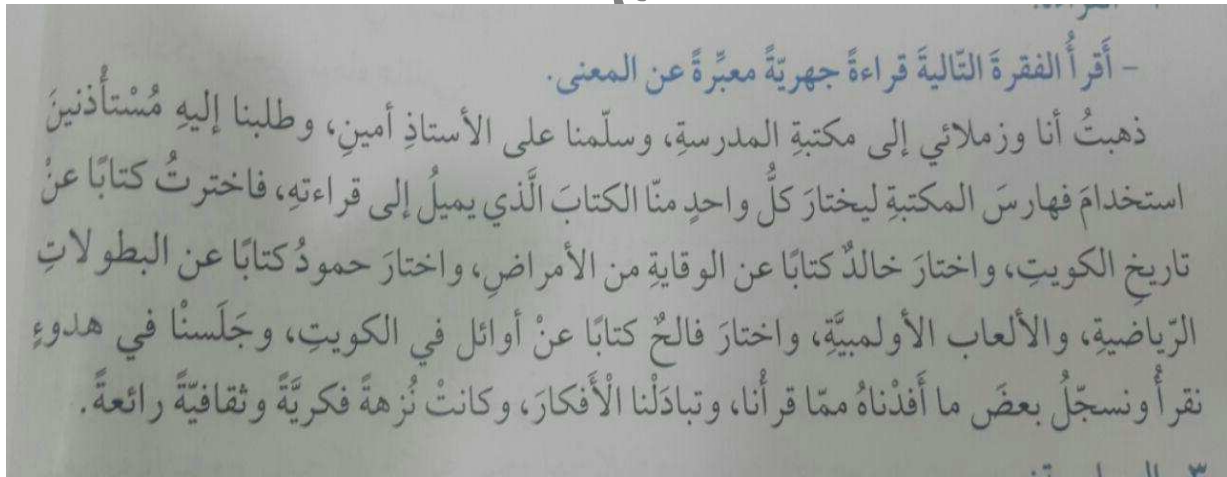 – أَقرأُ الفقرةَ التّاليةَ قراءةً جهريّةً معبِّرةً عن المعنى.
ذهبتُ أنا وزملائي إلى مكتبةِ المدرسةِ، وسلّمنا على الأستاذِ أمينِ، وطلبنا إليهِ مُسْتأْذنينَ
استخدامَ فهارسَ المكتبةِ ليختارَ كلُّ واحدٍ منّا الكتابَ الَّذي يميلُ إلى قراءتهِ، فاخترتُ كتابًا عنْ
تاريخِ الكويتِ، واختارَ خالدٌ كتابًا عن الوقايةِ من الأمراضِ، واختارَ حمودُ كتابًا عن البطولاتِ
الرّياضيةِ، والألعاب الأولمبيَّةِ، واختارَ فالحٌ كتابًا عنْ أوائل في الكويتِ، وجَلَسنْا في هدوءٍ
نقرأُ ونسجّلُ بعضَ ما أَفدْناهُ ممّا قرأْنا، وتبادَلْنا الْأَفكارَ، وكانتْ نُزهةً فكريَّةً وثقافيّةً رائعةً.